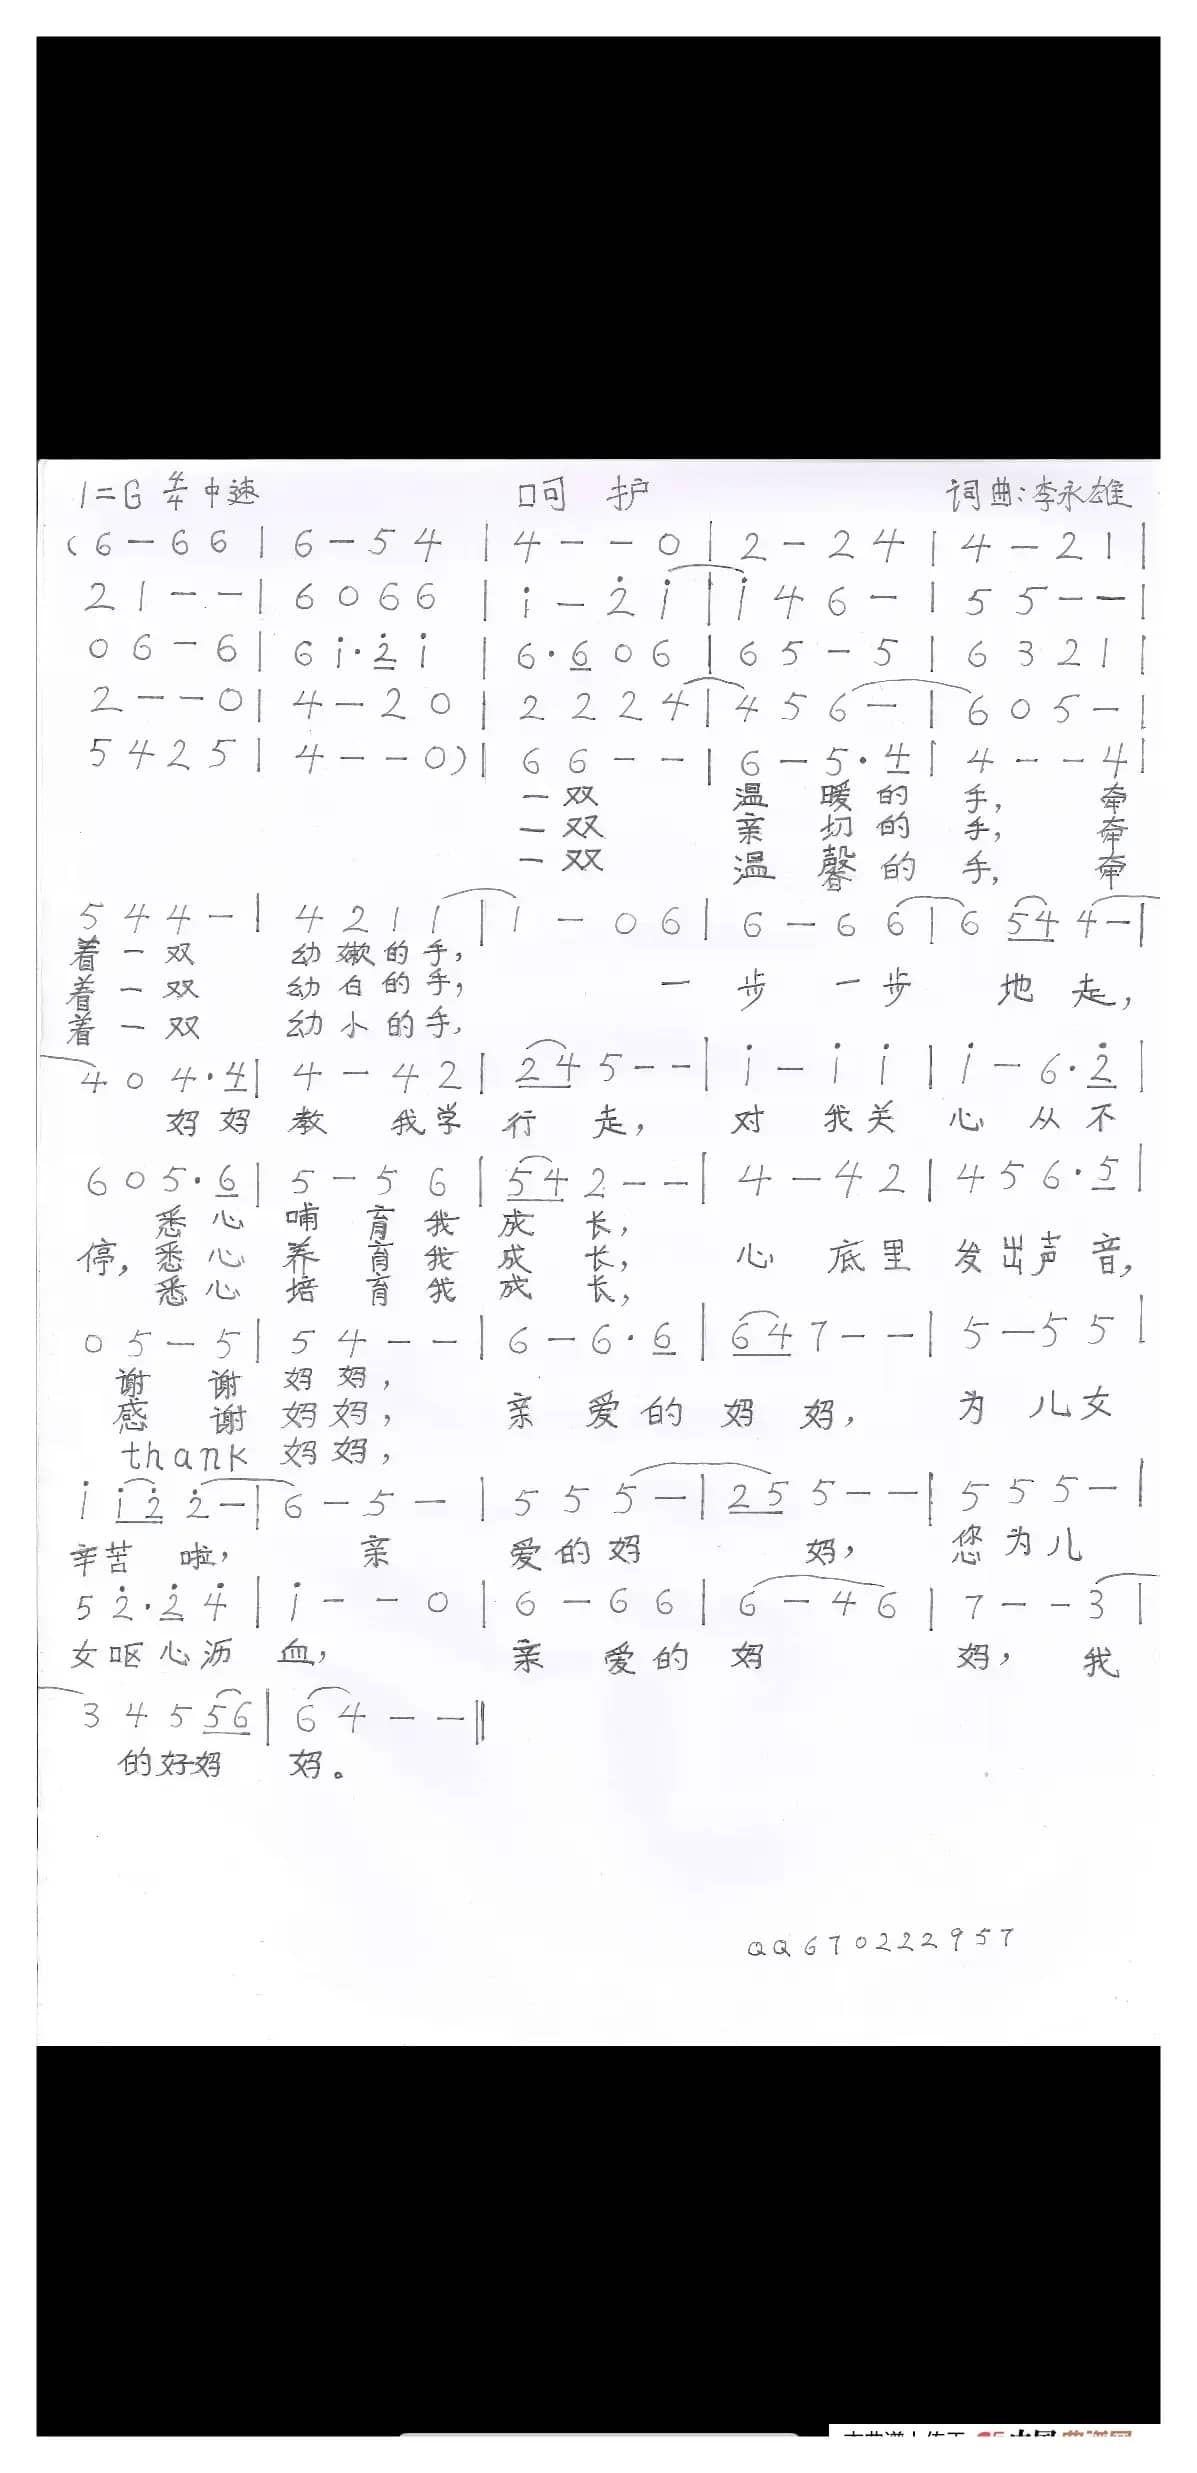 1=G 4/4 中速 呵护 词曲:李永雄
(6 - 6 6 | 6 - 5 4 | 4 - - 0 | 2 - 2 4 | 4 - 2 1 |
2 1 - - | 6 0 6 6 | i - 2̇ i | i 4 6 - | 5 5 - - |
0 6 - 6 | 6 i · 2̇ i | 6 · 6 0 6 | 6 5 - 5 | 6 3 2 1 |
2 - - 0 | 4 - 2 0 | 2 2 2 4 | 4 5 6 - | 6 0 5 - |
5 4 2 5 | 4 - - 0 ) | 6 6 - - | 6 - 5 · 4 | 4 - - 4 |
一双 温 暖的 手, 牵
一双 亲 切的 手, 牵
一双 温 馨的 手, 牵
5 4 4 - | 4 2 1 1 | 1 - 0 6 | 6 - 6 6 | 6 5 4 4 - |
着一双 幼嫩的手,
着一双 幼白的手, 一 步 一步 地 走,
着一双 幼小的手,
4 0 4 · 4 | 4 - 4 2 | 2 4 5 - - | i - i i | i - 6 · 2̇ |
妈妈 教 我学 行 走, 对 我关 心 从不
6 0 5 · 6 | 5 - 5 6 | 5 4 2 - - | 4 - 4 2 | 4 5 6 · 5 |
悉心 哺 育我 成 长,
停,悉心 养 育我 成 长, 心 底里 发出声音,
悉心 培 育我 成 长,
0 5 - 5 | 5 4 - - | 6 - 6 · 6 | 6 4 7 - - | 5 - 5 5 |
谢 谢 妈妈,
感 谢 妈妈, 亲 爱的 妈 妈, 为 儿女
thank 妈妈,
i i 2̇ 2̇ - | 6 - 5 - | 5 5 5 - | 2 5 5 - - | 5 5 5 - |
辛苦 啦, 亲 爱的妈 妈, 您为儿
5 2̇ · 2̇ 4̇ | i - - 0 | 6 - 6 6 | 6 - 4 6 | 7 - - 3 |
女呕心沥 血, 亲 爱的 妈 妈, 我
3 4 5 5 6 | 6 4 - - ‖
的好妈 妈。
QQ670222957